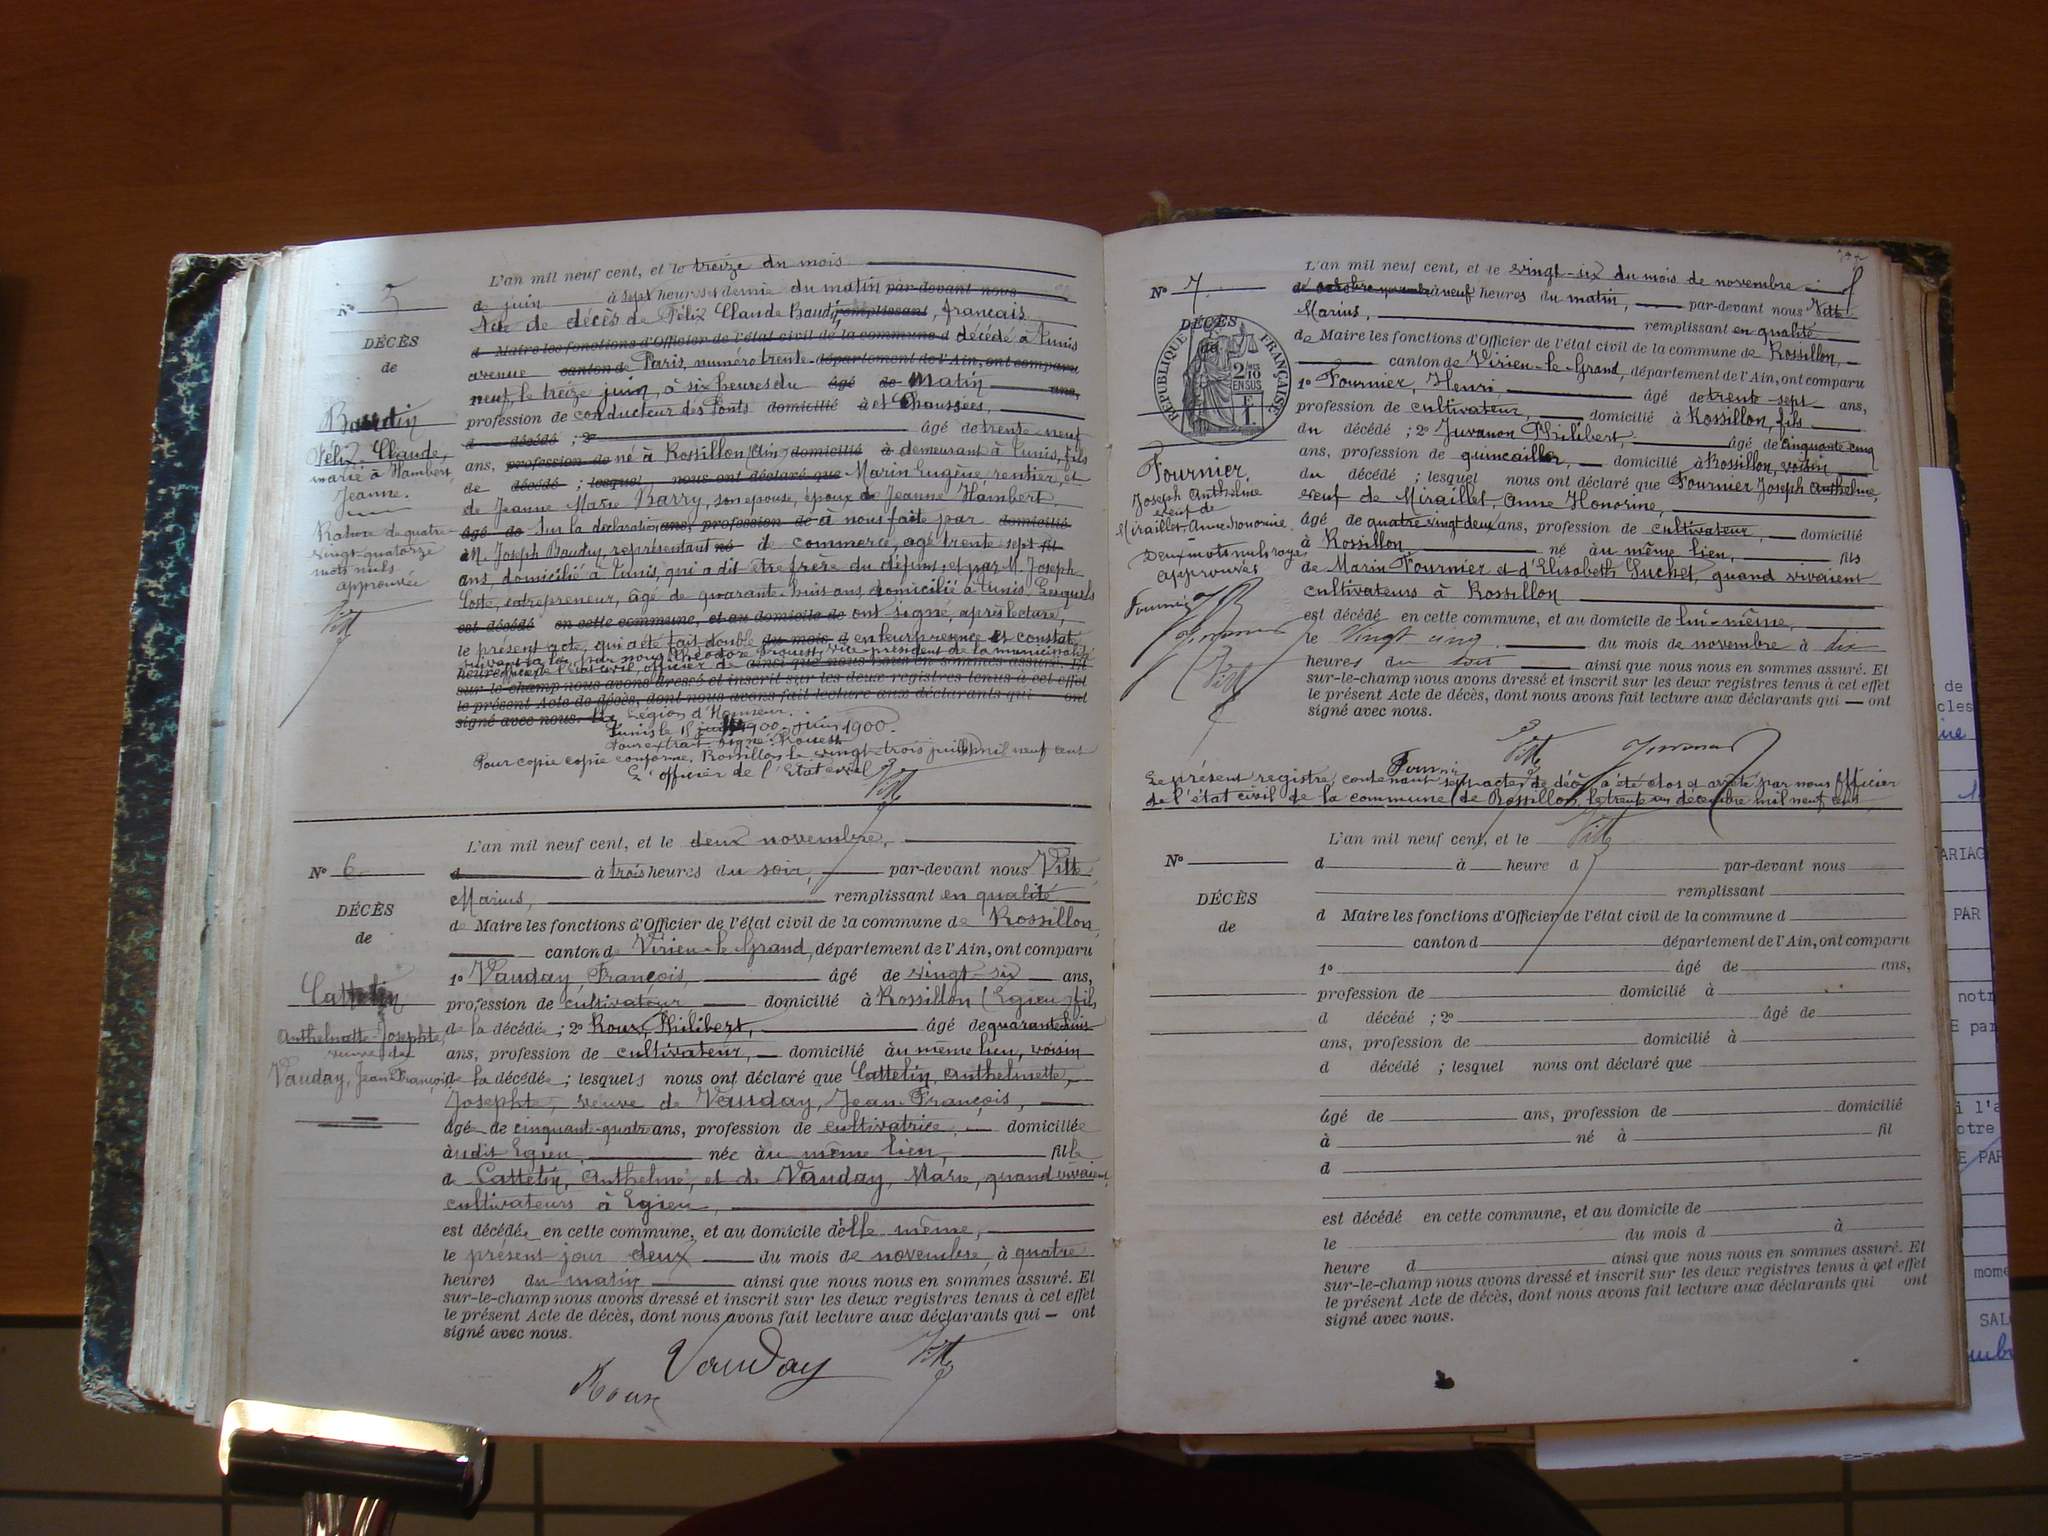 N° 5
DÉCÈS
de
Baudin
Félix Claude,
marié à Hambert
Jeanne.
Rature de quatre-
vingt-quatorze
mots nuls
approuvée
Vitte
L'an mil neuf cent, et le treize du mois
de juin à sept heures et demie du matin par-devant nous
Acte de décès de Félix Claude Baudin, remplissant, français
d Maire les fonctions d'Officier de l'état civil de la commune d décédé à Tunis
avenue canton de Paris, numéro trente- département de l'Ain, ont comparu
neuf, le treize juin, à six heures du âgé de matin ans,
profession de conducteur des Ponts domicilié à et Chaussées,
d décédé ; 2° âgé de trente-neuf
ans, profession de né à Rossillon (Ain) domicilié à demeurant à Tunis, fils
de décédé ; lesquel nous ont déclaré que Marin Eugène, rentier, et
de Jeanne Marie Barry, son épouse, époux de Jeanne Hambert.
âgé de Sur la déclaration ans, profession de à nous faite par domicilié
à M. Joseph Baudin, représentant né de commerce, âgé trente sept fil
ans, domicilié à Tunis, qui a dit être frère du défunt, et par M. Joseph
Coste, entrepreneur, âgé de quarante-huit ans domicilié à Tunis. Lesquels
est décédé en cette commune, et au domicile de ont signé, après lecture,
le présent acte, qui a été fait double du mois d en leur présence et constaté
suivant la loi, par nous Théodore Proust, vice-président de la municipalité
heure officier de l'état civil, officier de ainsi que nous nous en sommes assuré. Et
sur-le-champ nous avons dressé et inscrit sur les deux registres tenus à cet effet
le présent Acte de décès, dont nous avons fait lecture aux déclarants qui ont
signé avec nous. la Légion d'Honneur.
Tunis le 15 juin 1900.
Pour extrait. Signé:
Pour copie copie conforme. Rossillon le vingt-trois juillet mil neuf cent
L'officier de l'Etat civil
Vitte
N° 6
DÉCÈS
de
Cattelin
Anthelmette Josephte,
veuve de
Vauday, Jean François
L'an mil neuf cent, et le deux novembre,
d à trois heures du soir, par-devant nous Vitte
Marius, remplissant en qualité
de Maire les fonctions d'Officier de l'état civil de la commune de Rossillon,
canton de Virieu-le-Grand, département de l'Ain, ont comparu
1° Vauday, François, âgé de vingt-six ans,
profession de cultivateur domicilié à Rossillon (Egieu) fils
de la décédée ; 2° Roux, Philibert, âgé de quarante huit
ans, profession de cultivateur, domicilié au même lieu, voisin
de la décédée ; lesquels nous ont déclaré que Cattelin, Anthelmette,
Josephte, veuve de Vauday, Jean François,
âgé de cinquante-quatre ans, profession de cultivatrice, domiciliée
à udit Egieu, née à u même lieu, fille
de Cattelin, Anthelme, et de Vauday, Marie, quand vivaient
cultivateurs à Egieu,
est décédée en cette commune, et au domicile d'elle même,
le présent jour deux du mois de novembre, à quatre
heures du matin ainsi que nous nous en sommes assuré. Et
sur-le-champ nous avons dressé et inscrit sur les deux registres tenus à cet effet
le présent Acte de décès, dont nous avons fait lecture aux déclarants qui – ont
signé avec nous.
Roux Vauday Vitte
N° 7
DÉCÈS
de
RÉPUBLIQUE FRANÇAISE
2/10 EN SUS
Fournier
Joseph Anthelme
veuf de
Miraillet, Anne Honorine,
Deux mots nuls rayés
approuvés
Fournier
Juvanon
Vitte
L'an mil neuf cent, et le vingt-six du mois de novembre
de à neuf heures du matin, par-devant nous Vitte
Marius, remplissant en qualité
de Maire les fonctions d'Officier de l'état civil de la commune de Rossillon,
canton de Virieu-le-Grand, département de l'Ain, ont comparu
1° Fournier, Henri âgé de trente-sept ans,
profession de cultivateur, domicilié à Rossillon, fils
du décédé ; 2° Juvanon Philibert, âgé de cinquante cinq
ans, profession de quincailler, domicilié à Rossillon, voisin
du décédé ; lesquel nous ont déclaré que Fournier Joseph Anthelme,
veuf de Miraillet, Anne Honorine,
âgé de quatre vingt deux ans, profession de cultivateur, domicilié
à Rossillon né à u même lieu, fils
de Marin Fournier et d'Elisabeth Suchet, quand vivaient
cultivateurs à Rossillon
est décédé en cette commune, et au domicile de lui-même,
le vingt cinq du mois de novembre à dix
heures du soir ainsi que nous nous en sommes assuré. Et
sur-le-champ nous avons dressé et inscrit sur les deux registres tenus à cet effet
le présent Acte de décès, dont nous avons fait lecture aux déclarants qui — ont
signé avec nous.
Fournier Vitte Juvanon
Le présent registre, contenant sept actes de décès a été clos et arrêté par nous Officier
de l'état civil de la commune de Rossillon, le trente un décembre mil neuf cent
Vitte
N°
DÉCÈS
de
L'an mil neuf cent, et le
d à heure d par-devant nous
remplissant
d Maire les fonctions d'Officier de l'état civil de la commune d
canton d département de l'Ain, ont comparu
1° âgé de ans,
profession de domicilié à
d décédé ; 2° âgé de
ans, profession de domicilié à
d décédé ; lesquel nous ont déclaré que
âgé de ans, profession de domicilié
à né à fil
d
est décédé en cette commune, et au domicile de
le du mois d à
heure d ainsi que nous nous en sommes assuré. Et
sur-le-champ nous avons dressé et inscrit sur les deux registres tenus à cet effet
le présent Acte de décès, dont nous avons fait lecture aux déclarants qui ont
signé avec nous.